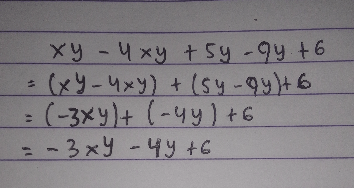 xy - 4xy + 5y - 9y + 6
= (xy - 4xy) + (5y - 9y) + 6
= (-3xy) + (-4y) + 6
= - 3xy - 4y + 6